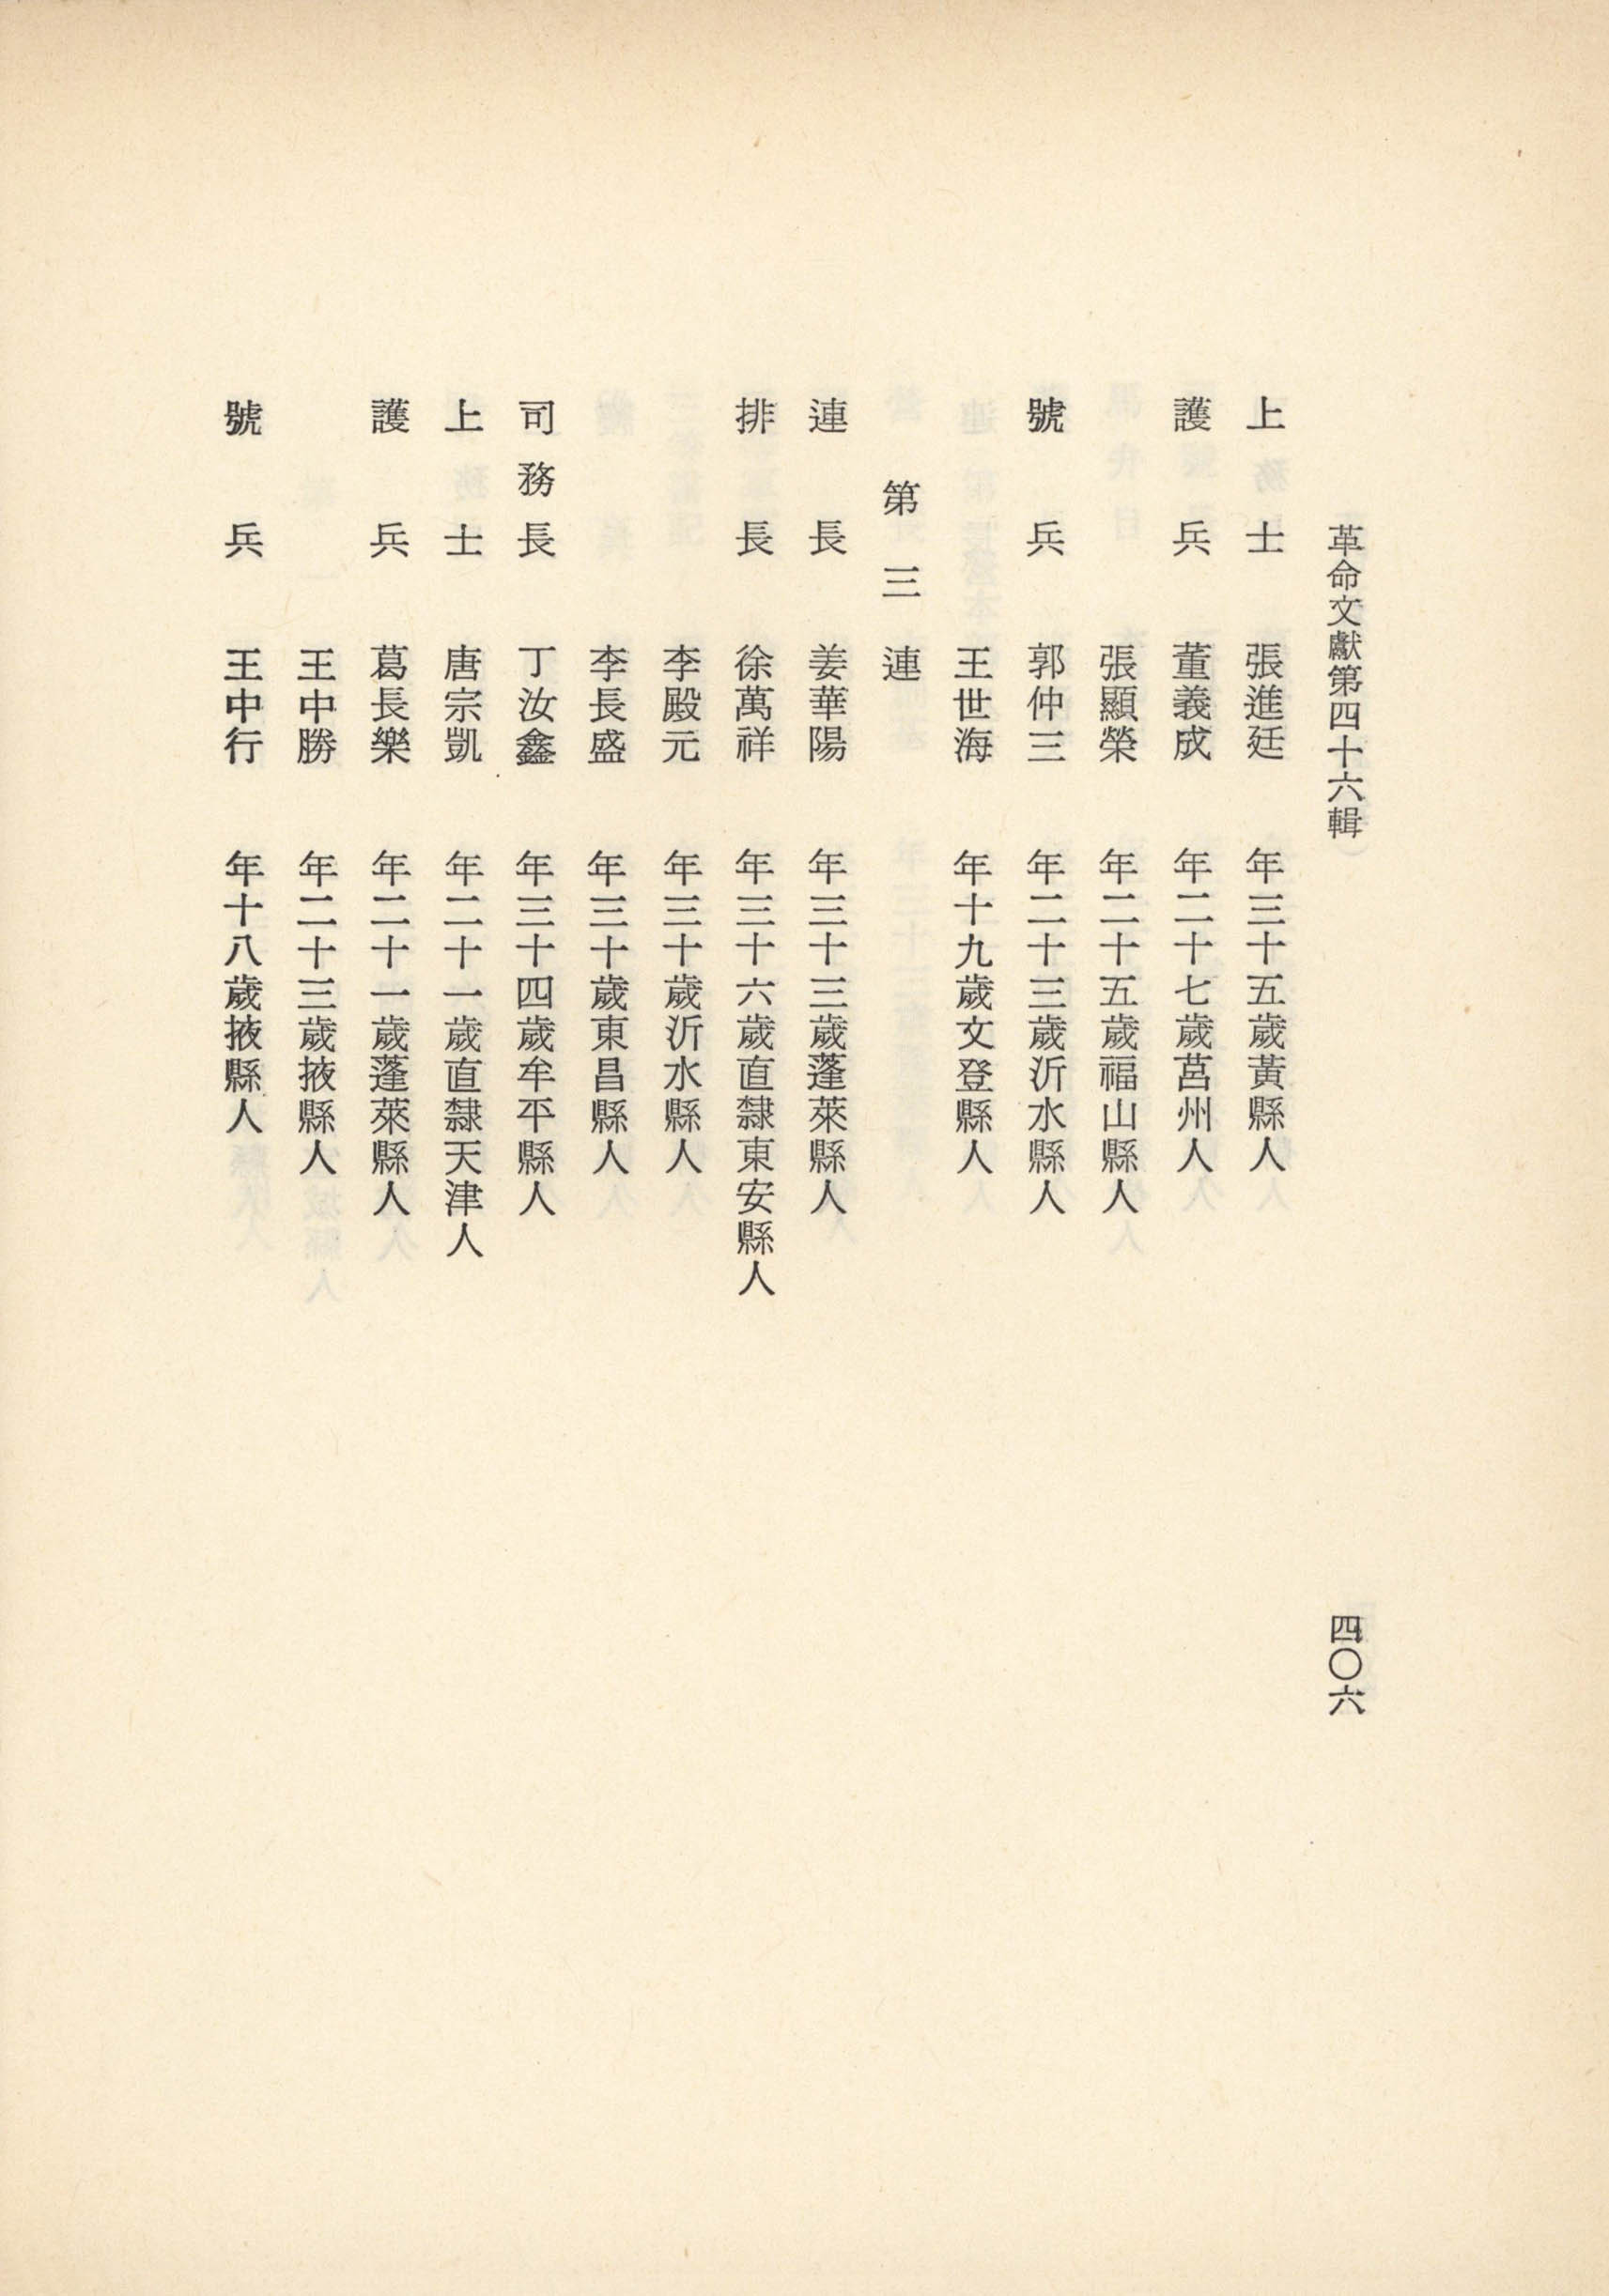 革命文獻第四十六輯
四〇六
上士 張進廷 年三十五歲黃縣人
護兵 董義成 年二十七歲莒州人
張顯榮 年二十五歲福山縣人
號兵 郭仲三 年二十三歲沂水縣人
王世海 年十九歲文登縣人
第三連
連長 姜華陽 年三十三歲蓬萊縣人
排長 徐萬祥 年三十六歲直隸東安縣人
李殿元 年三十歲沂水縣人
李長盛 年三十歲東昌縣人
司務長 丁汝鑫 年三十四歲牟平縣人
上士 唐宗凱 年二十一歲直隸天津人
護兵 葛長樂 年二十一歲蓬萊縣人
王中勝 年二十三歲掖縣人
號兵 王中行 年十八歲掖縣人